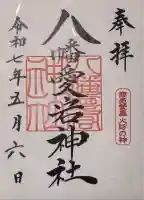 奉拝
八幡愛宕神社
令和七年五月六日